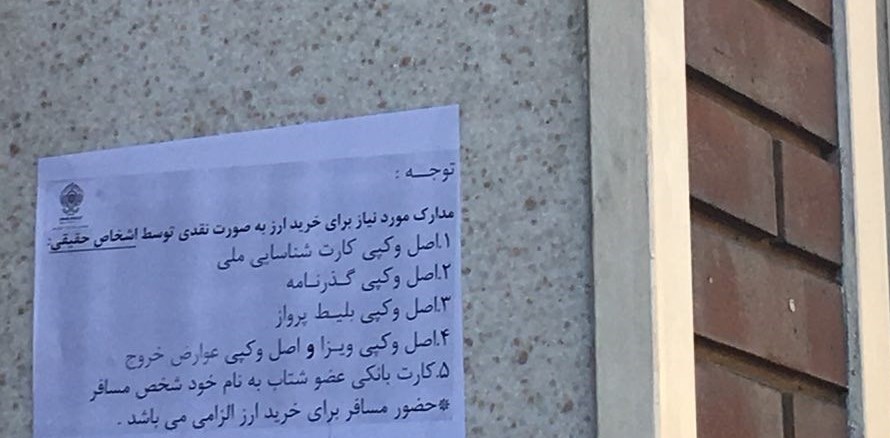 توجــه :
مدارک مورد نیاز برای خرید ارز به صورت نقدی توسط اشخاص حقیقی:
۱.اصل وکپی کارت شناسایی ملی
۲.اصل وکپی گـذرنـامه
۳.اصل وکپی بلیـط پرواز
۴.اصل وکپی ویـزا و اصل وکپی عوارض خروج
۵.کارت بانکی عضو شتاب به نام خود شخص مسافر
*حضور مسافر برای خرید ارز الزامی می باشد .